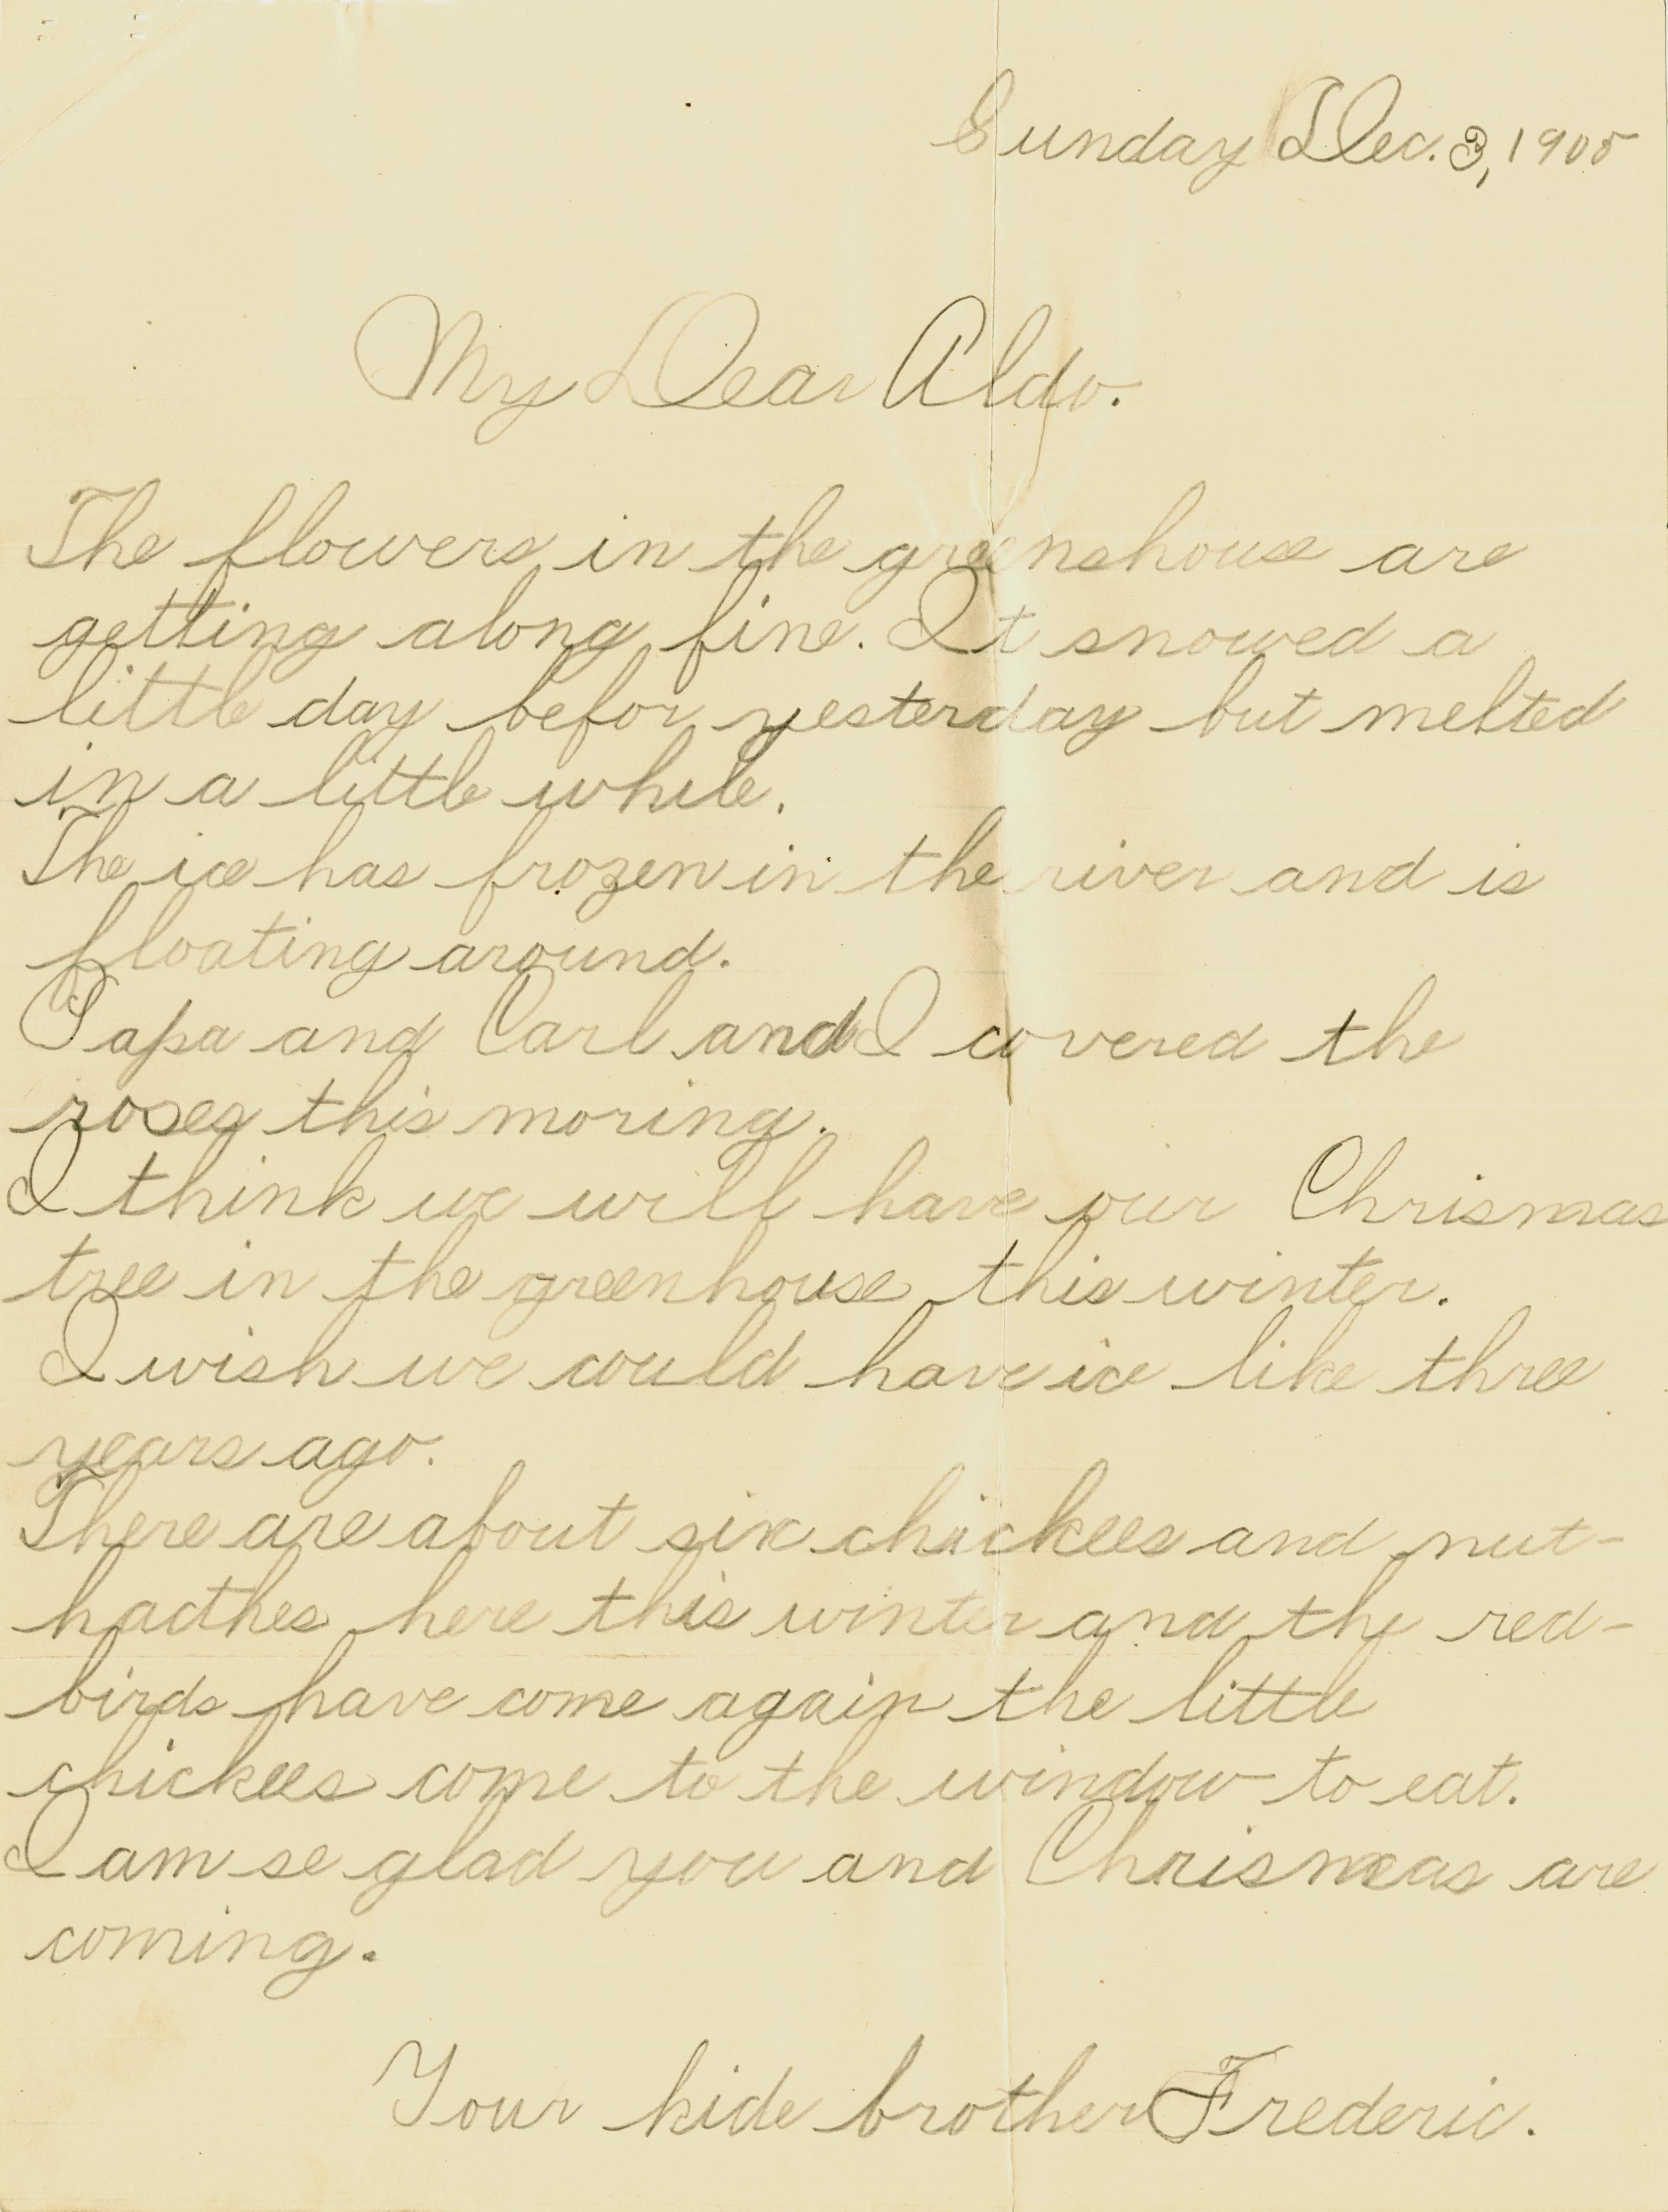 Sunday Dec. 3, 1905
My Dear Aldo.
The flowers in the greenshouse are
getting along fine. It snowed a
little day befor yesterday but melted
in a little while.
The ice has frozen in the river and is
floating around.
Papa and Carl and I covered the
roses this moring.
I think we will have our Chrismas
tree in the greenhouse this winter.
I wish we could have ice like three
years ago.
There are about six chickees and nut-
hacthes here this winter and the red-
birds have come again the little
chickees come to the window to eat.
I am se glad you and Chrismas are
coming.
Your kide brother Frederic.